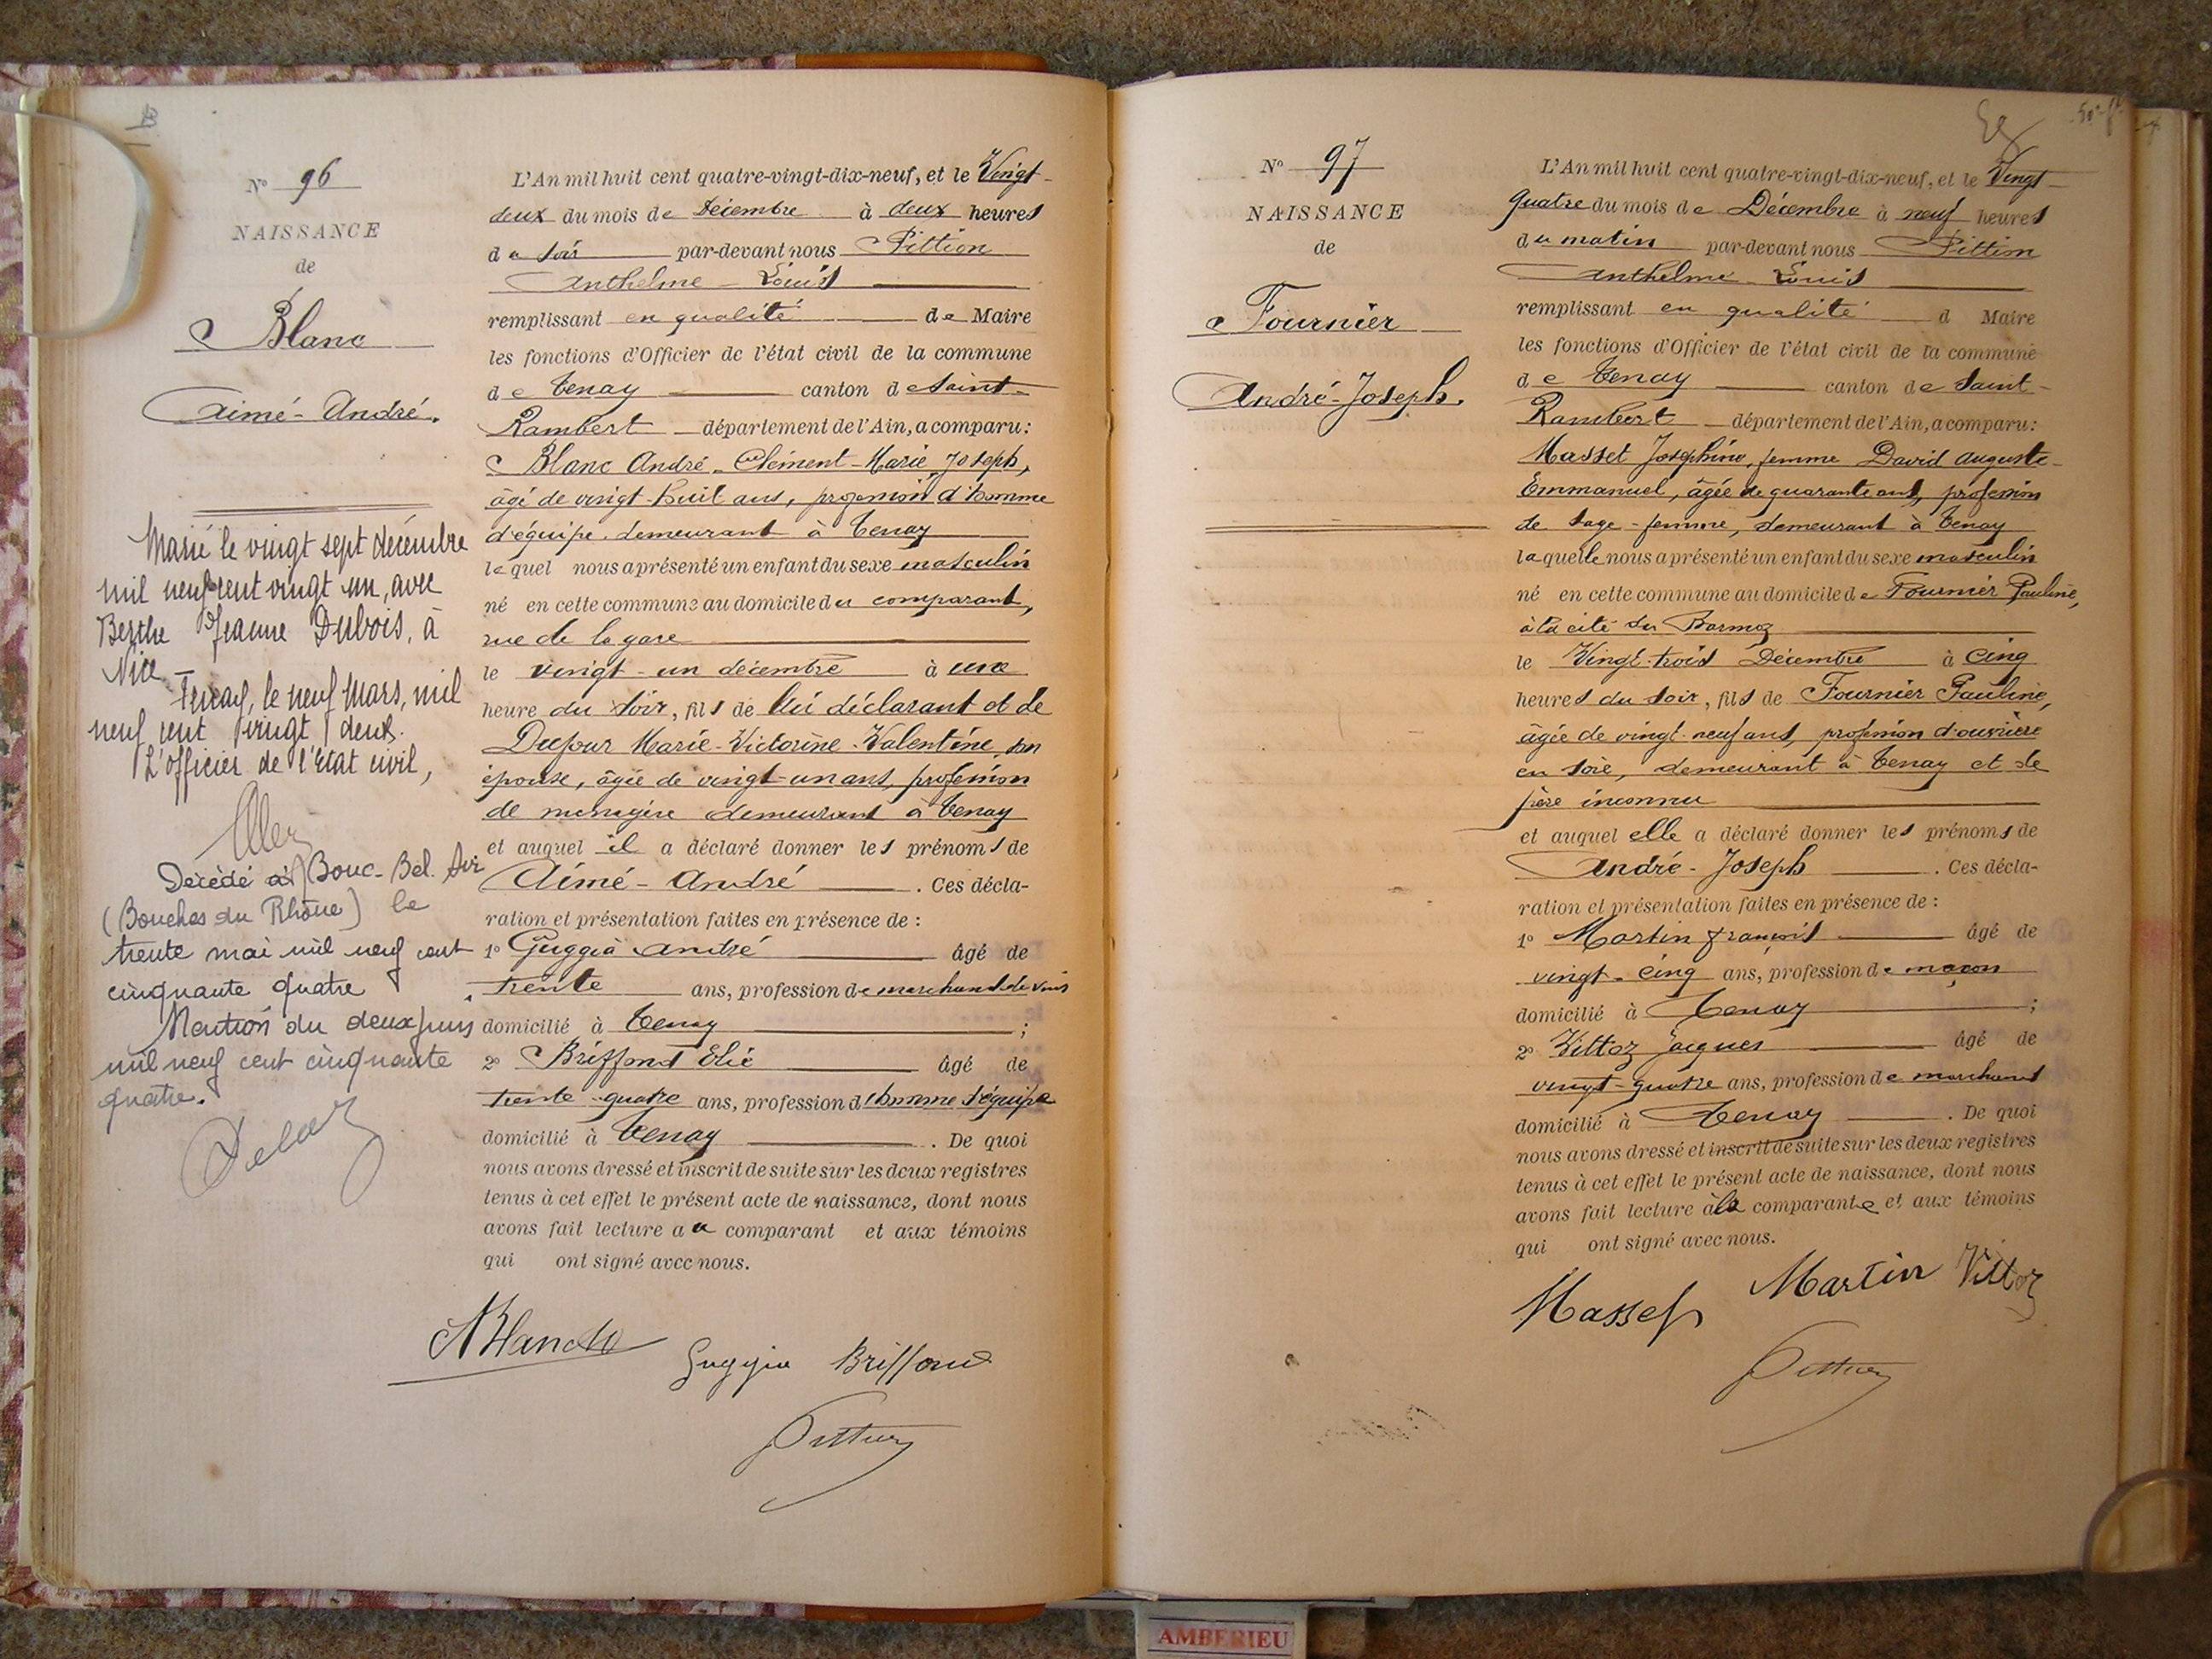 Nº 96
NAISSANCE
de
Blanc
Aimé-André.
Marié le vingt sept décembre
mil neuf cent vingt un, avec
Berthe Jeanne Dubois, à
Nice
Tenay, le neuf Mars, mil
neuf cent vingt deux.
L'officier de l'état civil,
Décédé à Bouc-Bel-Air
(Bouches du Rhône) le
trente mai mil neuf cent
cinquante quatre
Mention du deux juin
mil neuf cent cinquante
quatre.
L'An mil huit cent quatre-vingt-dix-neuf, et le Vingt-
deux du mois de Décembre à deux heures
du soir par-devant nous Pittion
Anthelme-Louis
remplissant en qualité de Maire
les fonctions d'Officier de l'état civil de la commune
de Tenay canton de Saint-
Rambert département de l'Ain, a comparu :
Blanc André-Clément-Marie Joseph,
âgé de vingt-huit ans, profession d'homme
d'équipe demeurant à Tenay
lequel nous a présenté un enfant du sexe masculin
né en cette commune au domicile du comparant,
rue de la gare
le vingt-un décembre à une
heure du soir, fils de lui déclarant et de
Dufour Marie-Victorine-Valentine son
épouse, âgée de vingt-un ans, profession
de ménagère demeurant à Tenay
et auquel il a déclaré donner les prénoms de
Aimé-André . Ces décla-
ration et présentation faites en présence de :
1º Guggia André âgé de
trente ans, profession de marchand de vins
domicilié à Tenay ;
2º Briffond Elie âgé de
trente-quatre ans, profession d'homme d'équipe
domicilié à Tenay . De quoi
nous avons dressé et inscrit de suite sur les deux registres
tenus à cet effet le présent acte de naissance, dont nous
avons fait lecture au comparant et aux témoins
qui ont signé avec nous.
Guggia Briffond
Pittion
Nº 97
NAISSANCE
de
Fournier
André-Joseph.
L'An mil huit cent quatre-vingt-dix-neuf, et le Vingt-
quatre du mois de Décembre à neuf heures
du matin par-devant nous Pittion
Anthelme-Louis
remplissant en qualité d Maire
les fonctions d'Officier de l'état civil de la commune
de Tenay canton de Saint-
Rambert département de l'Ain, a comparu :
Masset Joséphine, femme David Auguste-
Emmanuel, âgée de quarante ans, profession
de sage-femme, demeurant à Tenay
laquelle nous a présenté un enfant du sexe masculin
né en cette commune au domicile de Fournier Pauline,
à la cité du Barmoz
le Vingt-trois Décembre à cinq
heures du soir, fils de Fournier Pauline,
âgée de vingt-neuf ans, profession d'ouvrière
en soie, demeurant à Tenay et de
père inconnu
et auquel elle a déclaré donner les prénoms de
André-Joseph . Ces décla-
ration et présentation faites en présence de :
1º Martin François âgé de
vingt-cinq ans, profession de maçon
domicilié à Tenay ;
2º Vittoz Jacques âgé de
vingt-quatre ans, profession de marchand
domicilié à Tenay . De quoi
nous avons dressé et inscrit de suite sur les deux registres
tenus à cet effet le présent acte de naissance, dont nous
avons fait lecture à la comparante et aux témoins
qui ont signé avec nous.
Masset Martin Vittoz
Pittion
AMBERIEU